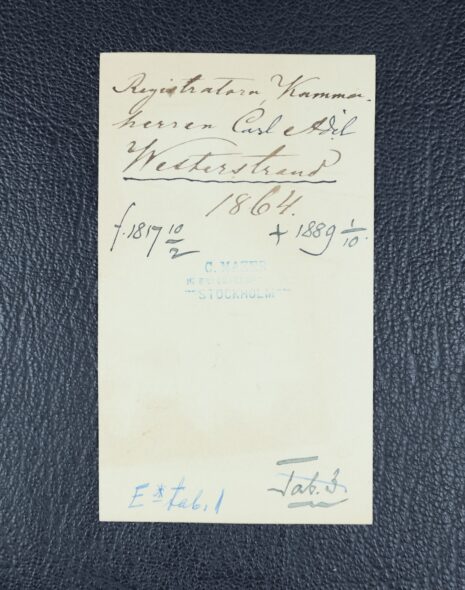 Registratorn, Kammar-
herren Carl Adil
Westerstrand
1864.
f. 1817 10/2 + 1889 1/10.
C. MAZER
STOCKHOLM
E* tab. 1
Tab. 3.